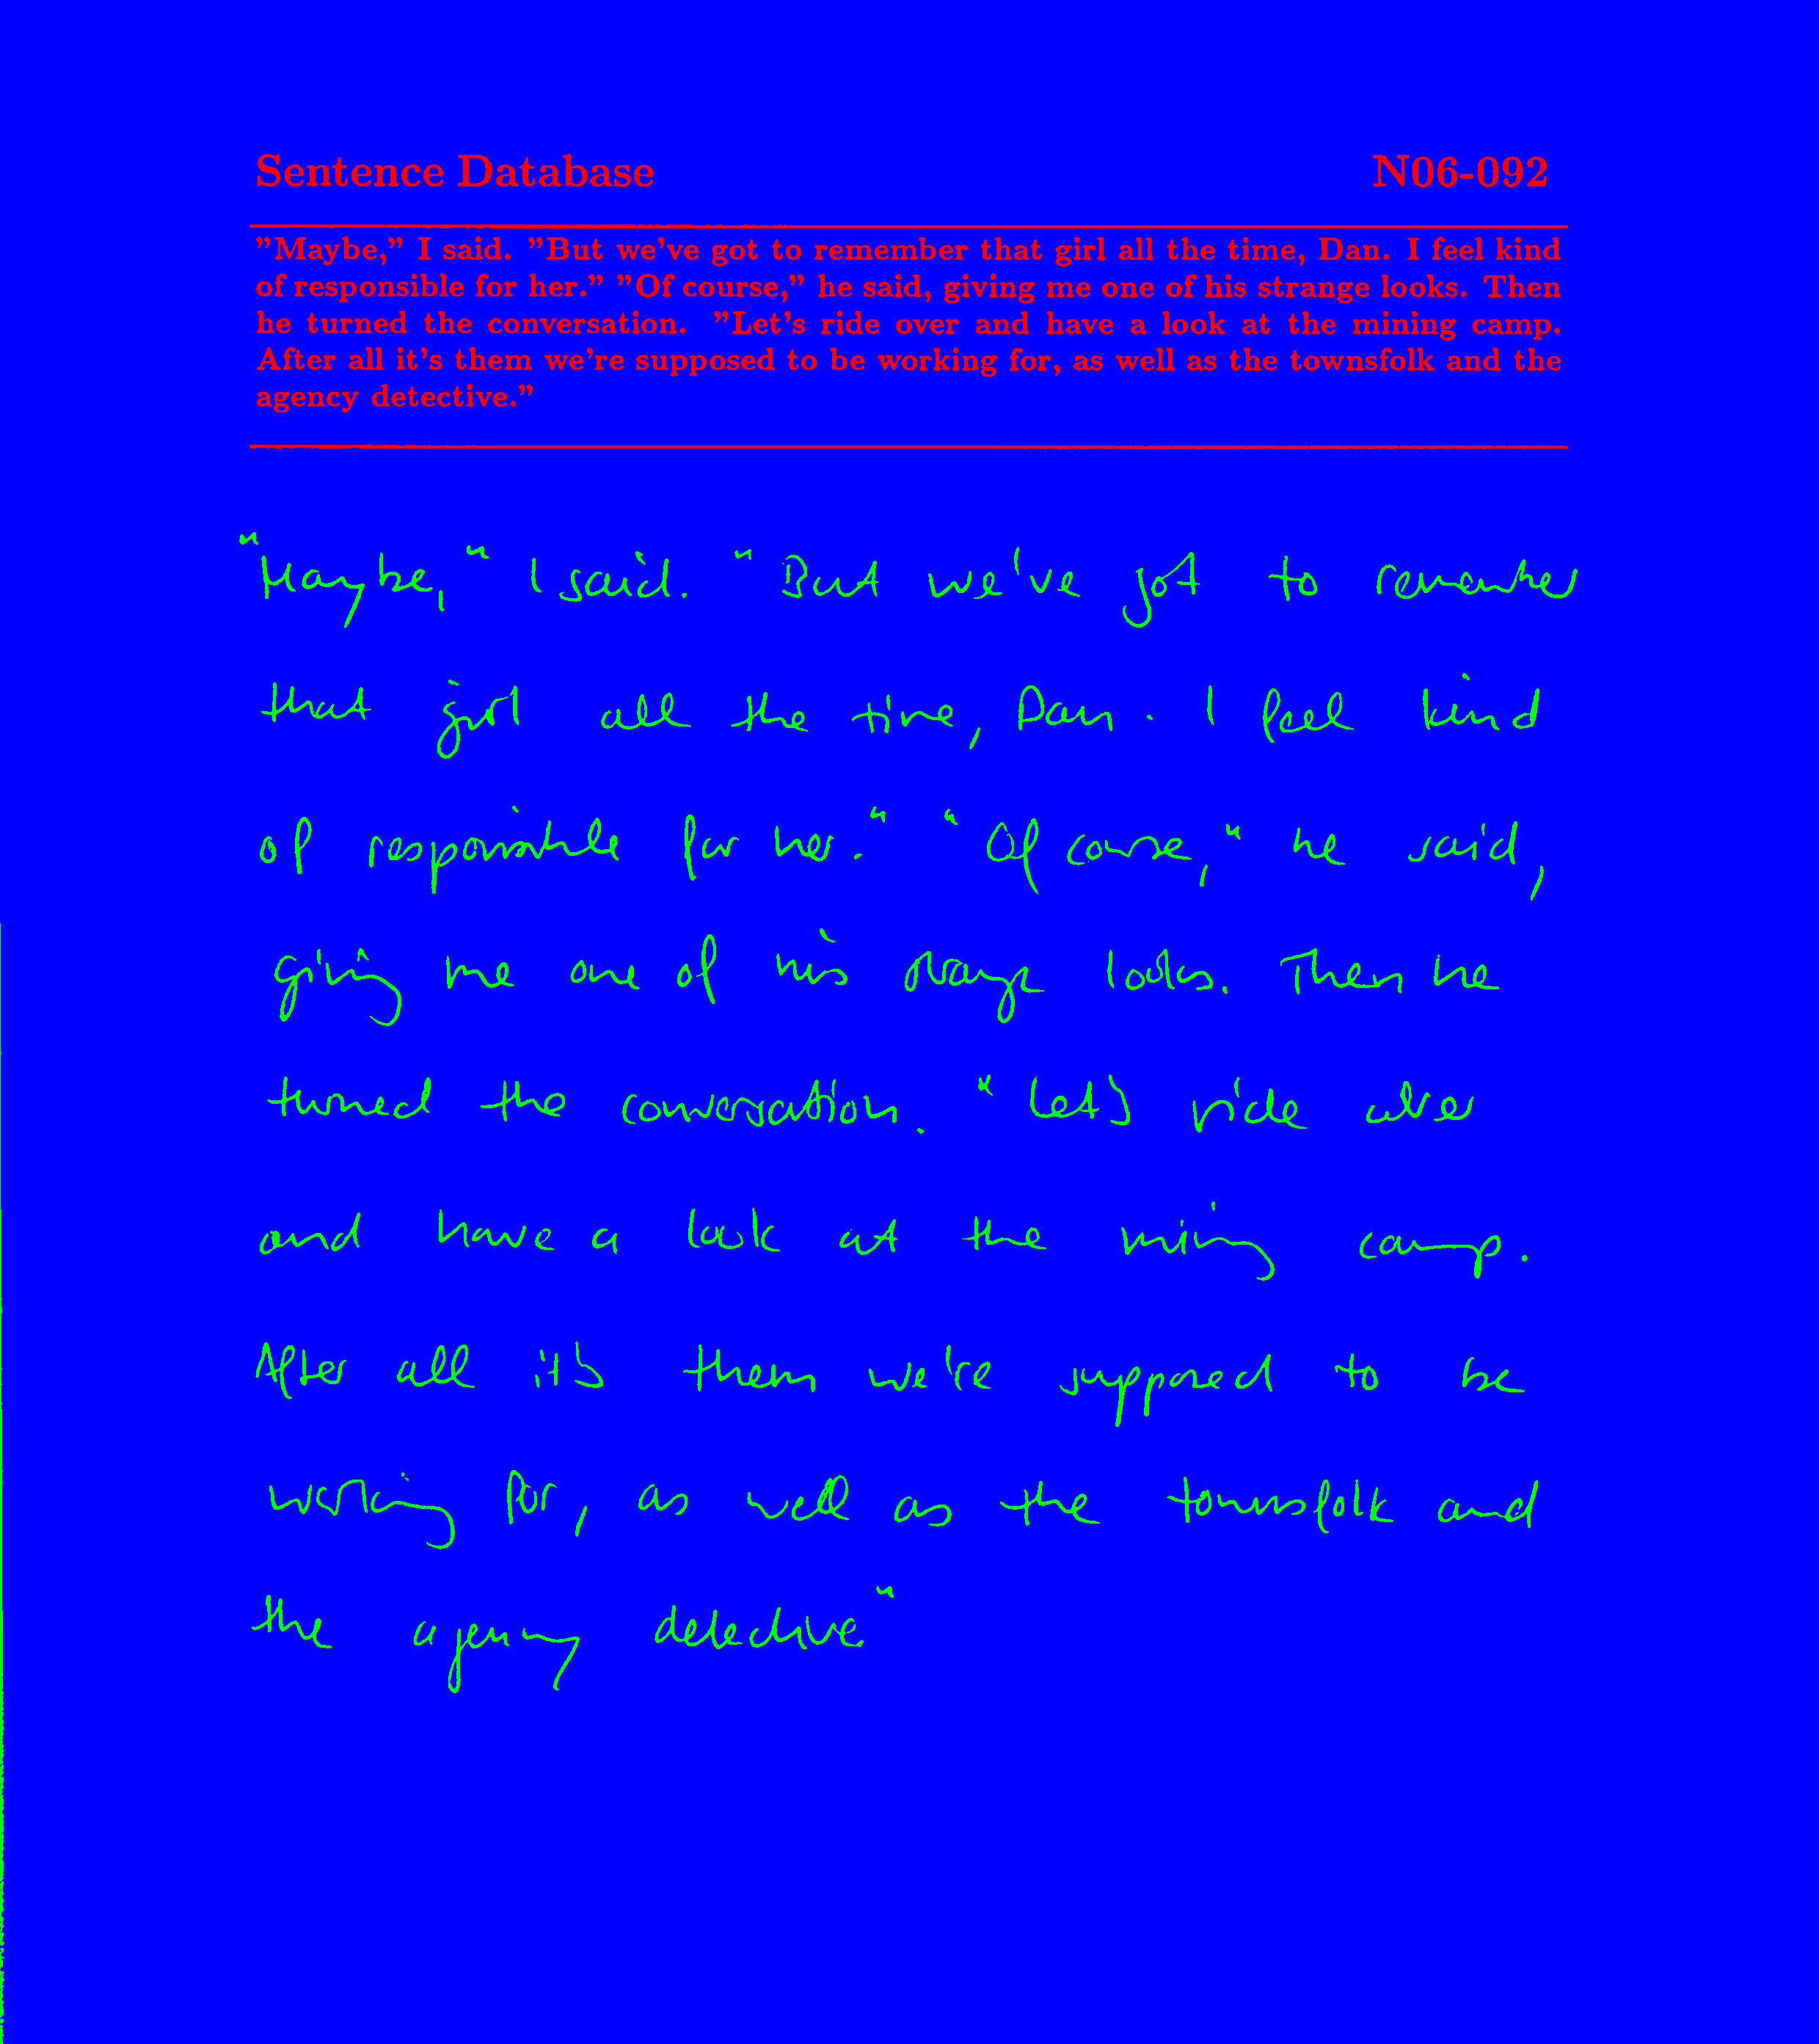 Sentence Database N06-092
"Maybe," I said. "But we've got to remember that girl all the time, Dan. I feel kind
of responsible for her." "Of course," he said, giving me one of his strange looks. Then
he turned the conversation. "Let's ride over and have a look at the mining camp.
After all it's them we're supposed to be working for, as well as the townsfolk and the
agency detective."
"Maybe," I said. "But we've got to remember
that girl all the time, Dan. I feel kind
of responsible for her." "Of course," he said,
giving me one of his strange looks. Then he
turned the conversation. "Let's ride over
and have a look at the mining camp.
After all it's them we're supposed to be
working for, as well as the townsfolk and
the agency detective."